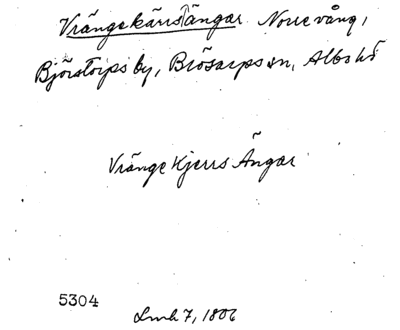 Vrängekärrsängar Norrevång,
Björstorps by, Brösarps sn, Albo hd
Vränge Kjerrs Ängar
5304
Lmh 7, 1806